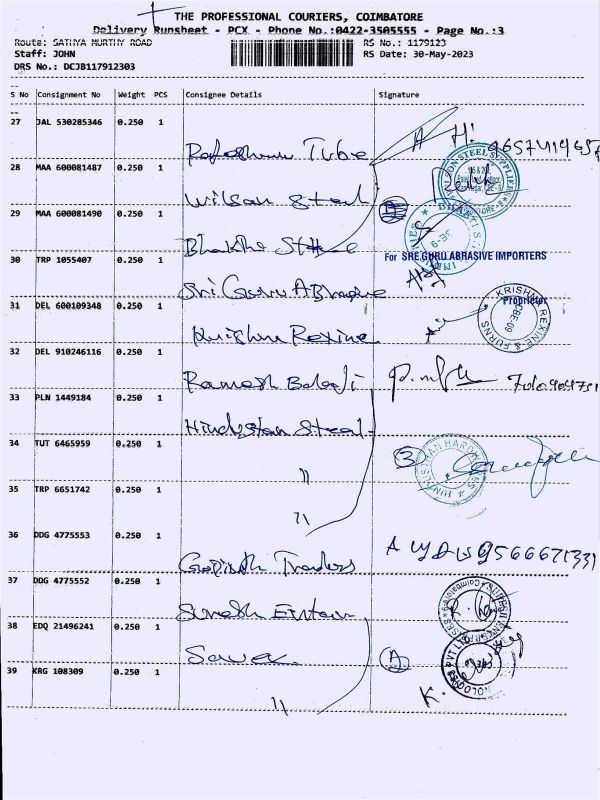 THE PROFESSIONAL COURIERS, COIMBATORE
Delivery Runsheet - PCX - Phone No.:0422-3505555 - Page No.:3
Route: SATHYA MURTHY ROAD RS No.: 1179123
Staff: JOHN RS Date: 30-May-2023
DRS No.: DCJB117912303
S No Consignment No Weight PCS Consignee Details Signature
27 JAL 530285346 0.250 1
Tube
28 MAA 600081487 0.250 1
Wilson Steel
29 MAA 600081490 0.250 1
30 TRP 1055407 0.250 1
For SRE GURU ABRASIVE IMPORTERS
Sri Guru
31 DEL 600109348 0.250 1
Proprietor
Krishna Rexine
KRISHNA REXINE & FURNS
32 DEL 910246116 0.250 1
Ramesh Balaji
33 PLN 1449184 0.250 1
Hindustan Steel
34 TUT 6465959 0.250 1
3
"
35 TRP 6651742 0.250 1
"
36 DDG 4775553 0.250 1
Traders 9566671331
37 DDG 4775552 0.250 1
Suresh
38 EDQ 21496241 0.250 1
39 KRG 108309 0.250 1
K.
"